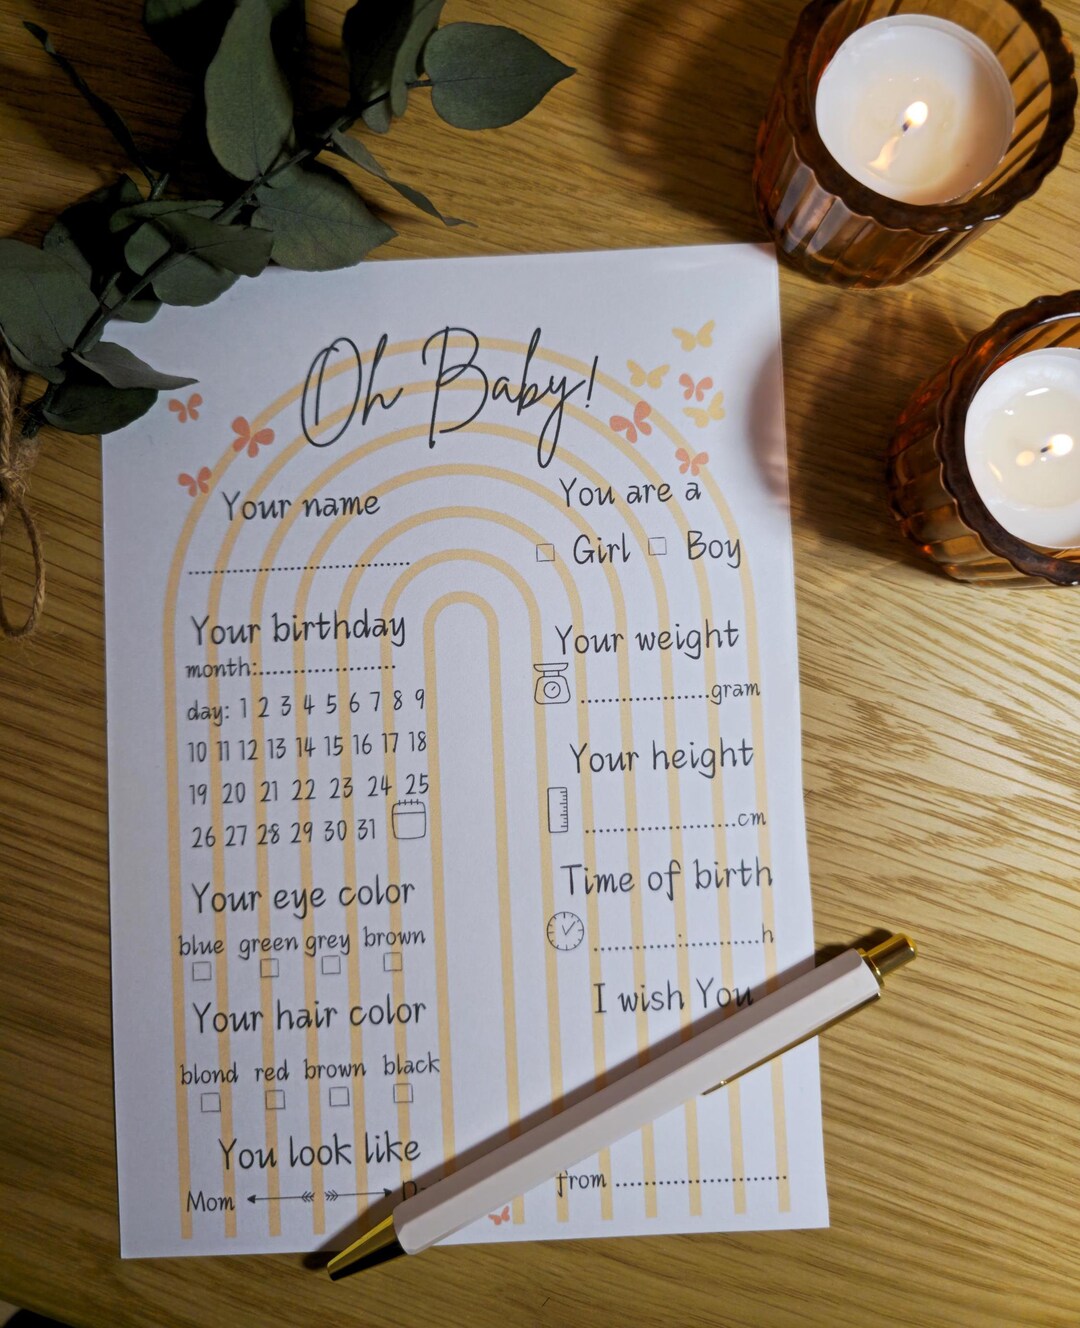 Oh Baby!
Your name
........................................
You are a
Girl Boy
Your birthday
month:........................
day: 1 2 3 4 5 6 7 8 9
10 11 12 13 14 15 16 17 18
19 20 21 22 23 24 25
26 27 28 29 30 31
Your eye color
blue green grey brown
Your hair color
blond red brown black
You look like
Mom
Your weight
......................gram
Your height
..........................cm
Time of birth
...............:.............h
I wish You
from ..............................